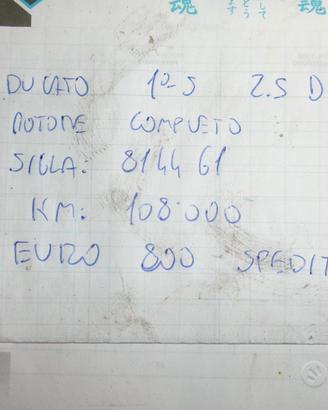 魂 魂
DUCATO 10-S 2.5 D
MOTORE COMPLETO
SIGLA: 8144 61
KM: 108.000
EURO 800 SPEDIT